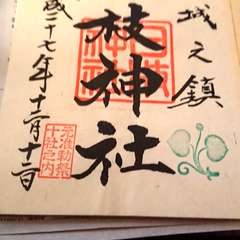 城之鎮
枝神社
成二十七年十二月十二日
元准勅祭
十社之内